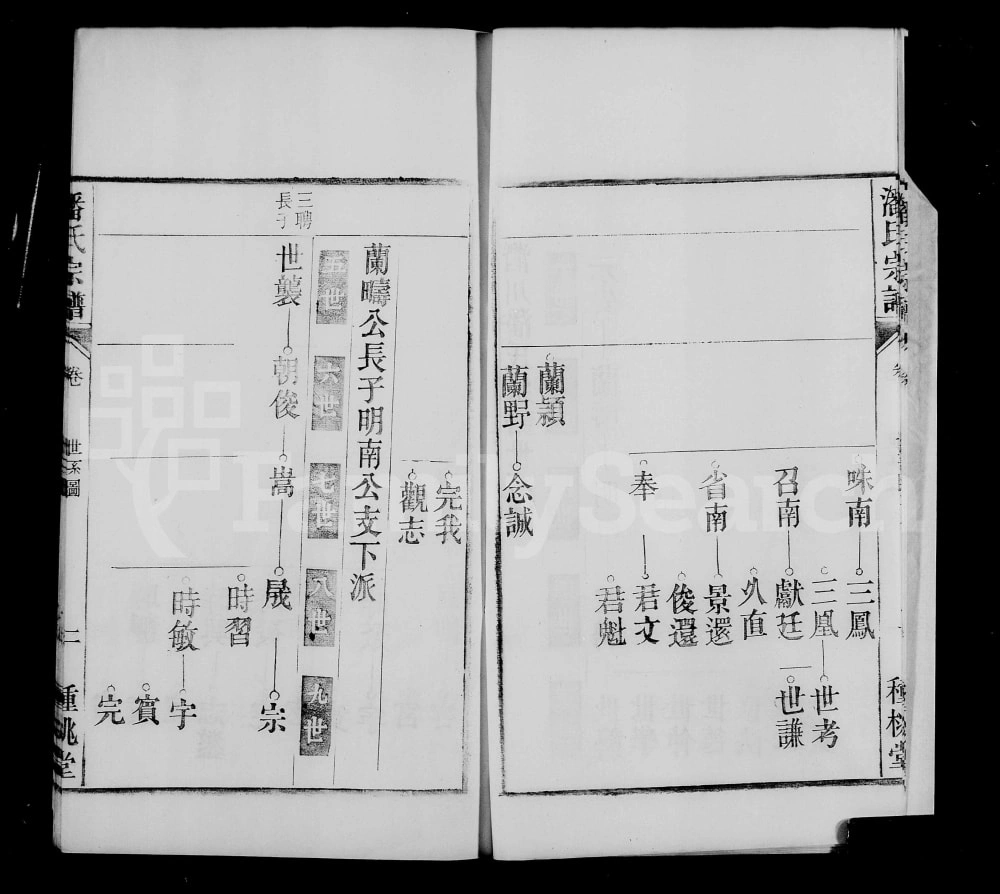 潘氏宗譜
卷
種桃堂
味南
三鳳
三凰
世考
世謙
召南
獻廷
久直
省南
景還
俊還
奉
君文
君魁
蘭穎
蘭野
念誠
完我
觀志
蘭疇公長子明南公支下派
五世
六世
七世
八世
九世
三聘
長子
世襲
朝俊
嵩
晟
宗
時習
時敏
宇
賓
完
潘氏宗譜
卷
世系圖
二
種桃堂
FamilySearch